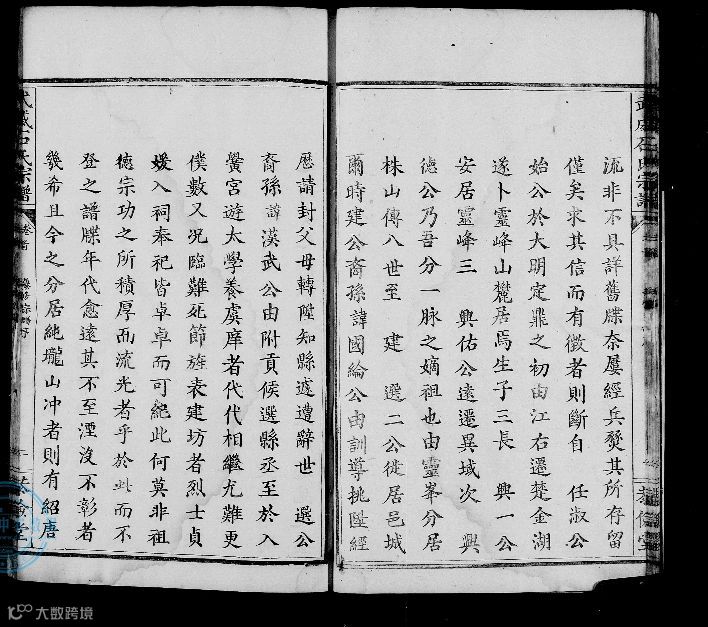 流非不具詳舊牒奈屢經兵燹其所存留
僅矣求其信而有徵者則斷自 任淑公
始公於大明定鼎之初由江右遷楚金湖
遂卜靈峰山麓居焉生子三長 興一公
安居靈峰三 興佑公遠遷異域次 興
德公乃吾分一脉之嫡祖也由靈峯分居
株山傳八世至 建 選二公徙居邑城
爾時建公裔孫諱國綸公由訓導挑陞經
歷請封父母轉陞知縣遽遭辭世 選公
裔孫諱漢武公由附貢候選縣丞至於入
黌宮遊太學養虞庠者代代相繼尤難更
僕數又况臨難死節旌表建坊者烈士貞
媛入祠奉祀皆卓卓而可紀此何莫非祖
德宗功之所積厚而流光者乎於此而不
登之譜牒年代愈遠其不至湮沒不彰者
幾希且今之分居純壠山冲者則有紹唐
武威石氏宗譜
卷首
一
大数跨境